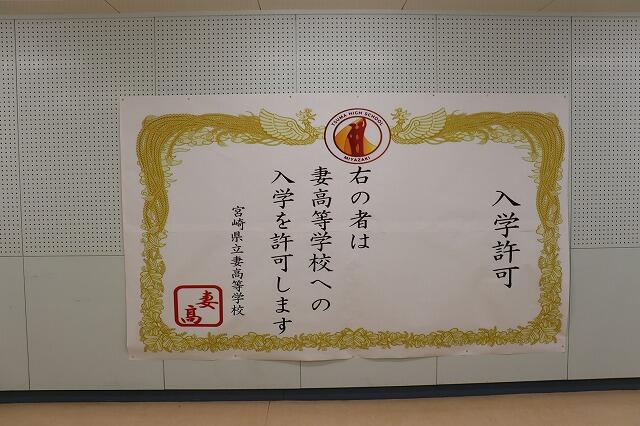 TSUMA HIGH SCHOOL
MIYAZAKI
入学許可
右の者は
妻高等学校への
入学を許可します
宮崎県立妻高等学校
妻高